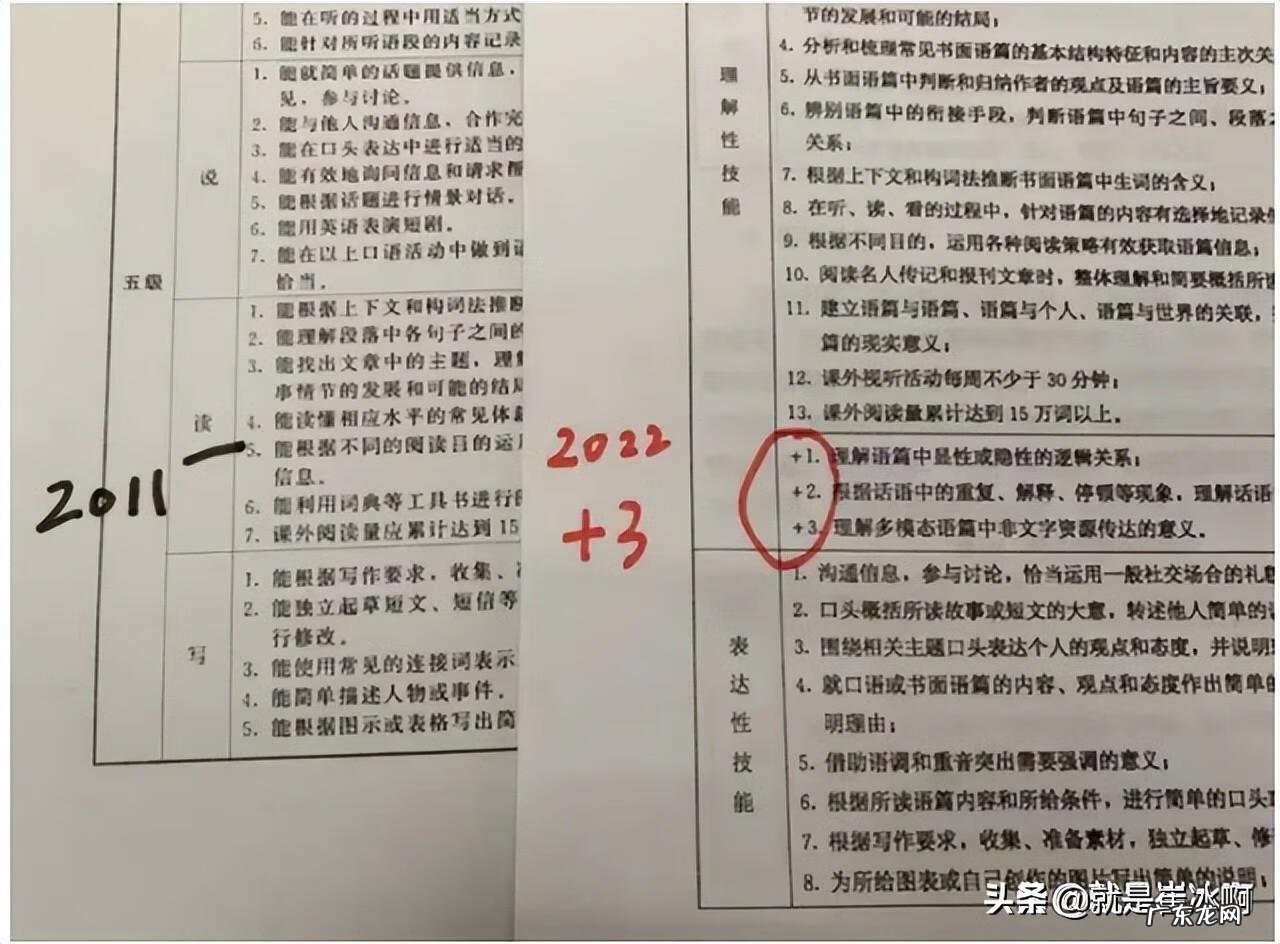 5. 能在听的过程中用适当方式
6. 能针对所听语段的内容记录
说
1. 能就简单的话题提供信息，
见，参与讨论。
2. 能与他人沟通信息，合作完
3. 能在口头表达中进行适当的
4. 能有效地询问信息和请求帮
5. 能根据话题进行情景对话。
6. 能用英语表演短剧。
7. 能在以上口语活动中做到语
恰当。
五级
读
1. 能根据上下文和构词法推断
2. 能理解段落中各句子之间的
3. 能找出文章中的主题，理解
事情节的发展和可能的结局
4. 能读懂相应水平的常见体裁
5. 能根据不同的阅读目的运用
信息。
6. 能利用词典等工具书进行
7. 课外阅读量应累计达到 15
写
1. 能根据写作要求，收集、准
2. 能独立起草短文、短信等
行修改。
3. 能使用常见的连接词表示
4. 能简单描述人物或事件。
5. 能根据图示或表格写出简
2011
2022
+3
理解性技能
节的发展和可能的结局；
4. 分析和梳理常见书面语篇的基本结构特征和内容的主次关
5. 从书面语篇中判断和归纳作者的观点及语篇的主旨要义；
6. 辨别语篇中的衔接手段，判断语篇中句子之间、段落之
关系；
7. 根据上下文和构词法推断书面语篇中生词的含义；
8. 在听、读、看的过程中，针对语篇的内容有选择地记录信
9. 根据不同目的，运用各种阅读策略有效获取语篇信息；
10. 阅读名人传记和报刊文章时，整体理解和简要概括所读
11. 建立语篇与语篇、语篇与个人、语篇与世界的关联，
篇的现实意义；
12. 课外视听活动每周不少于 30 分钟；
13. 课外阅读量累计达到 15 万词以上。
+1. 理解语篇中显性或隐性的逻辑关系；
+2. 根据话语中的重复、解释、停顿等现象，理解话语
+3. 理解多模态语篇中非文字资源传达的意义。
表达性技能
1. 沟通信息，参与讨论，恰当运用一般社交场合的礼貌
2. 口头概括所读故事或短文的大意，转述他人简单的
3. 围绕相关主题口头表达个人的观点和态度，并说明理
4. 就口语或书面语篇的内容、观点和态度作出简单的
明理由；
5. 借助语调和重音突出需要强调的意义；
6. 根据所读语篇内容和所给条件，进行简单的口头
7. 根据写作要求，收集、准备素材，独立起草、修
8. 为所给图表或自己创作的图片写出简单的说明；
头条 @就是崔冰啊
广东龙网